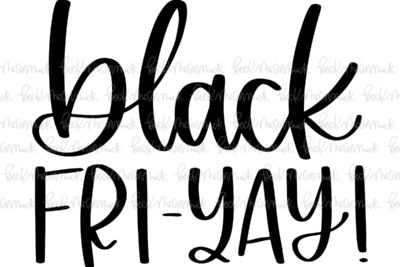 black
FRI-YAY!